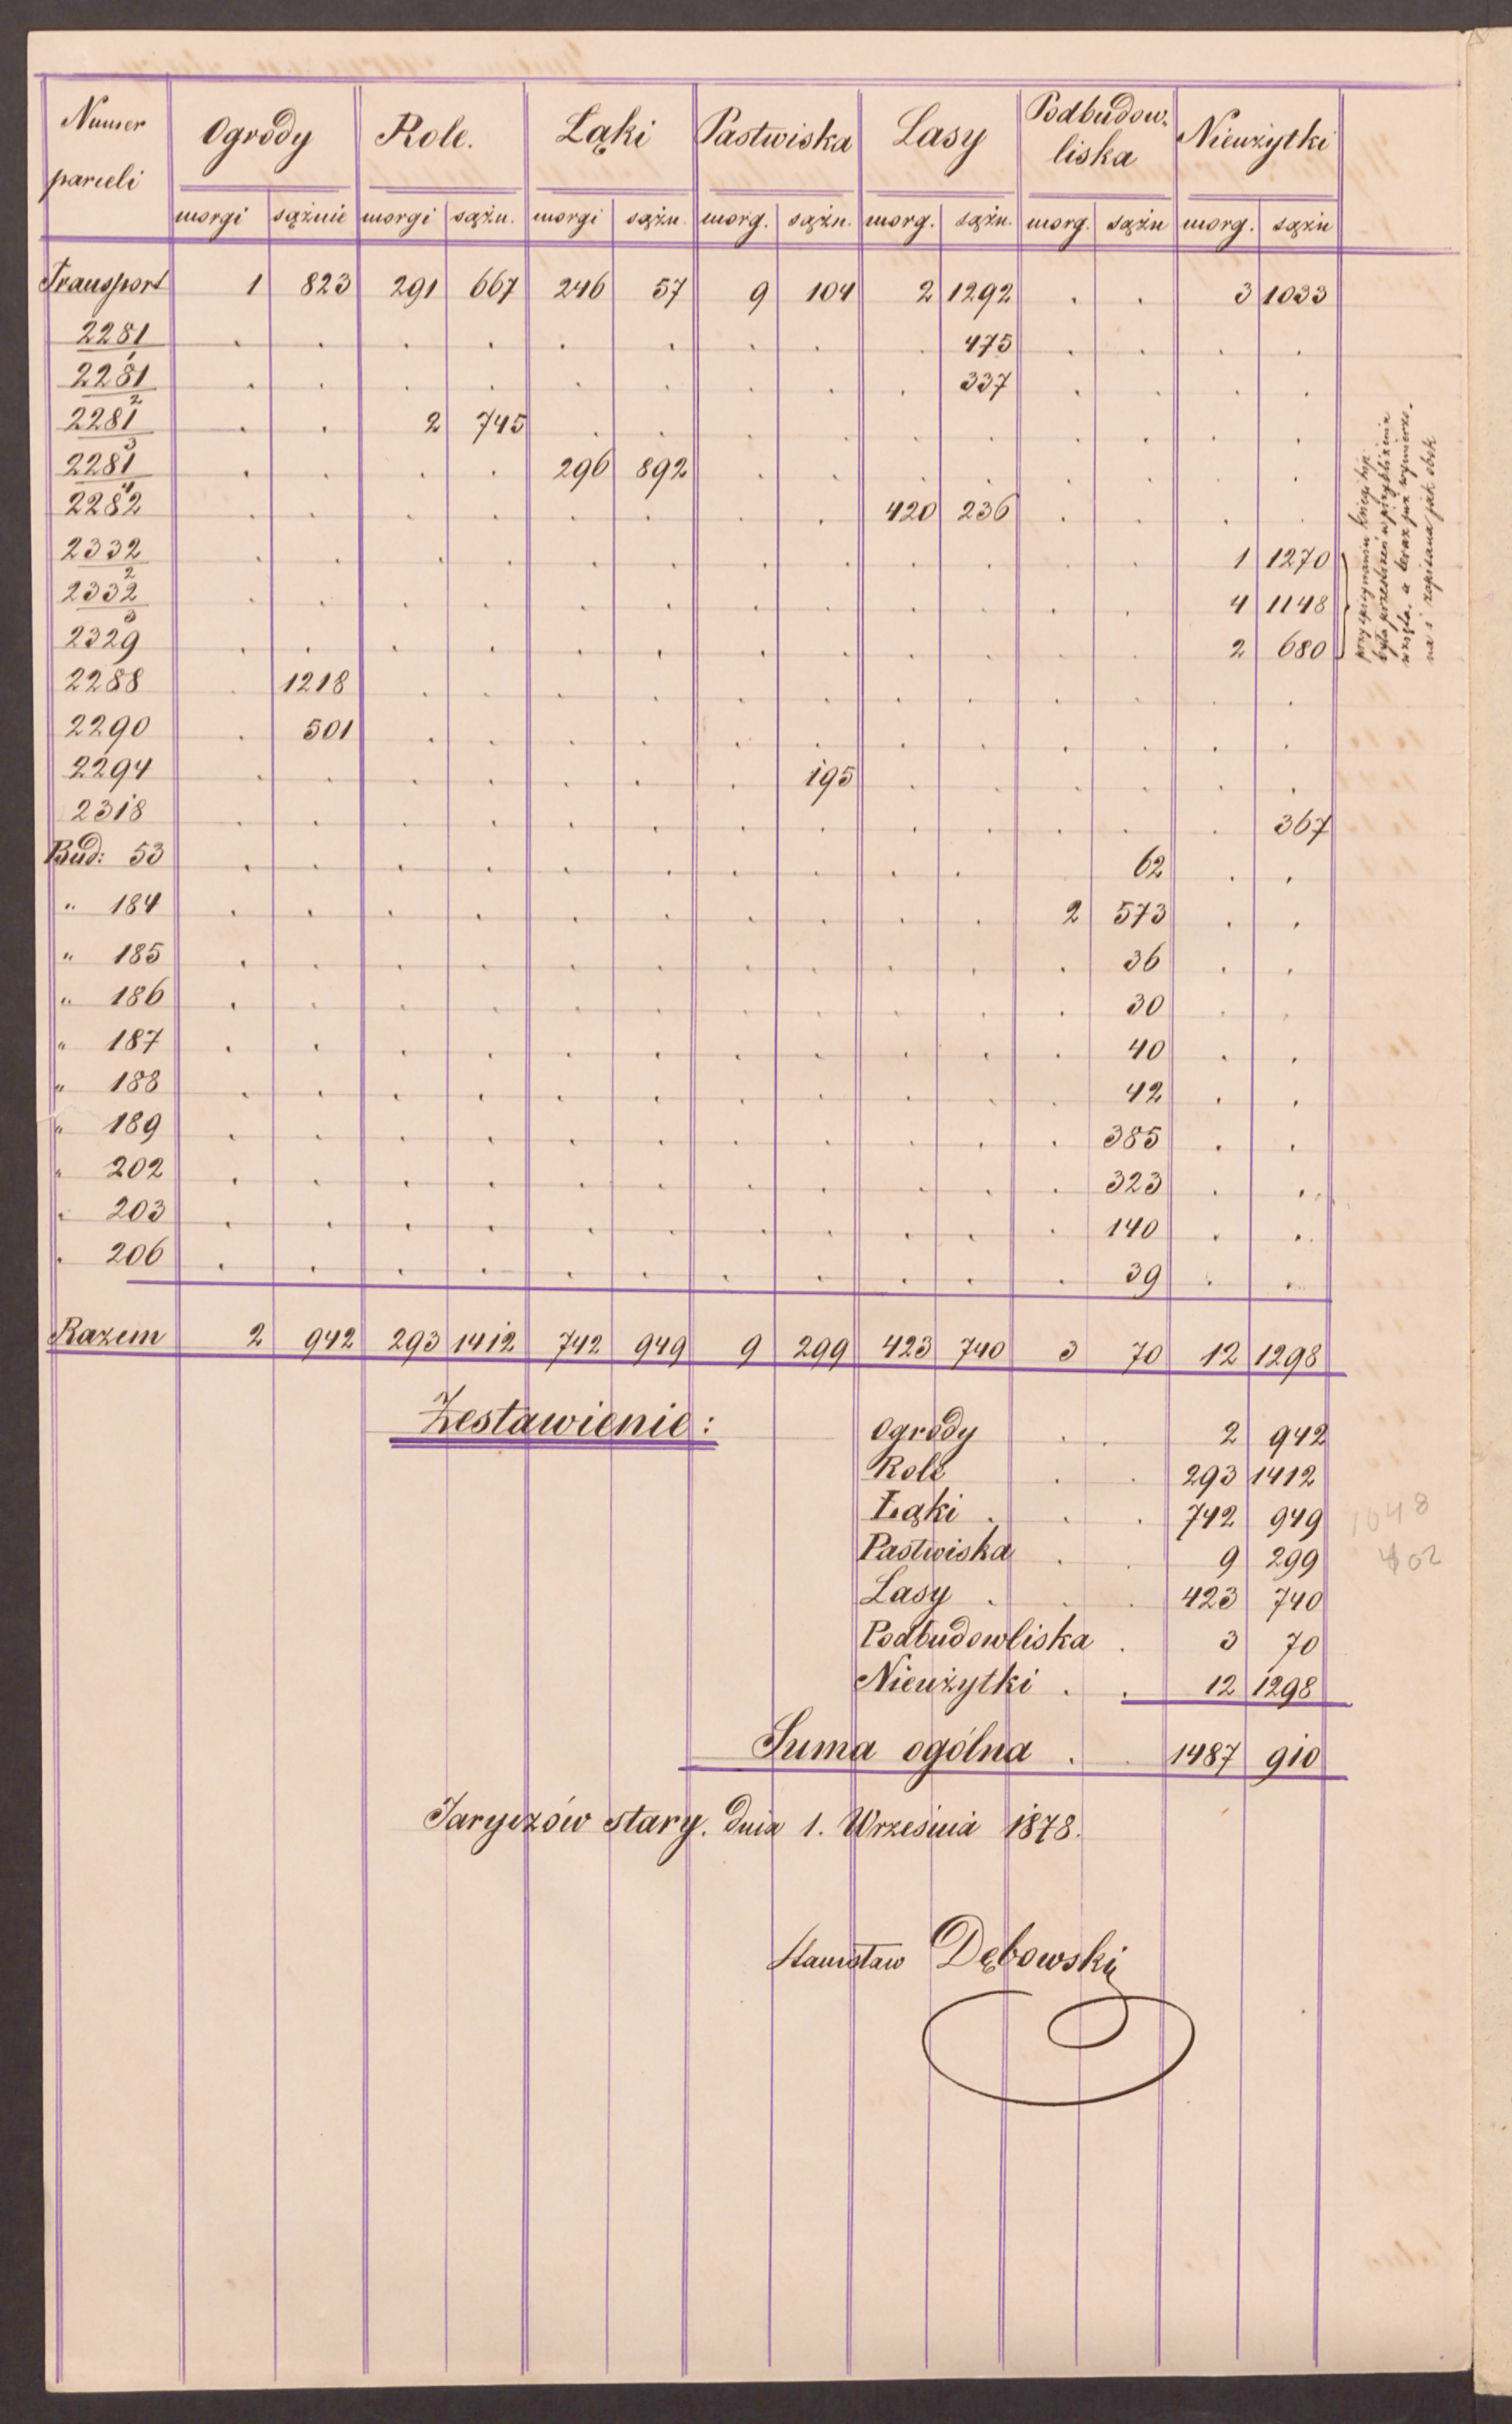 Numer parceli | Ogrody | Role. | Łąki | Pastwiska | Lasy | Podbudow- liska | Nieużytki
morgi | sążnie | morgi | sążn. | morgi | sążn. | morg. | sążn. | morg. | sążn. | morg. | sążn | morg. | sążn
Transport 1 823 291 667 246 57 9 104 2 1292 . . 3 1033
2281/1 . . . . . . . . . 475 . . . .
2281/2 . . . . . . . . . 337 . . . .
2281/3 . . 2 745 . . . . . . . . . .
2281/4 . . . . 296 892 . . . . . . . .
2282 . . . . . . . . 420 236 . . . .
2332/2 . . . . . . . . . . . . 1 1270
2332/3 . . . . . . . . . . . . 4 1148
2329 . . . . . . . . . . . . 2 680
2288 . 1218 . . . . . . . . . . . .
2290 . 501 . . . . . . . . . . . .
2294 . . . . . . . 195 . . . . . .
2318 . . . . . . . . . . . . . 367
Bud: 53 . . . . . . . . . . 62 . .
" 184 . . . . . . . . . . 2 573 . .
" 185 . . . . . . . . . . . 36 . .
" 186 . . . . . . . . . . . 30 . .
" 187 . . . . . . . . . . . 40 . .
" 188 . . . . . . . . . . . 42 . .
" 189 . . . . . . . . . . . 385 . .
" 202 . . . . . . . . . . . 323 . .
" 203 . . . . . . . . . . . 140 . .
" 206 . . . . . . . . . . . 39 . .
Razem 2 942 293 1412 742 949 9 299 423 740 3 70 12 1298
była przestrzeń w przybliżeniu
a teraz już wymierzo-
na i zapisana jak obok
Zestawienie:
Ogrody . . 2 942
Role . . 293 1412
Łąki . . . 742 949
Pastwiska . . 9 299
Lasy . . . 423 740
Podbudowliska . 3 70
Nieużytki . . 12 1298
Suma ogólna . . 1487 910
1048
402
Jaryczów stary. dnia 1. Września 1878.
Stanisław Dębowski